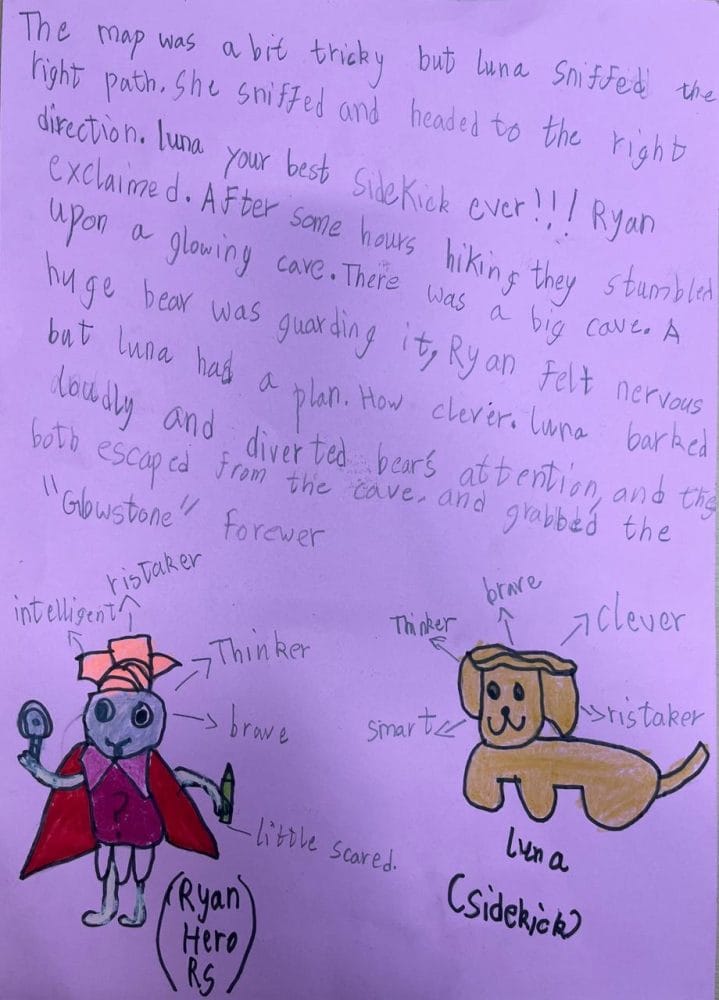 The map was a bit tricky but luna sniffed the
right path. She sniffed and headed to the right
direction. luna your best sidekick ever!!! Ryan
exclaimed. After some hours hiking they stumbled
upon a glowing cave. There was a big cave. A
huge bear was guarding it, Ryan felt nervous
but luna had a plan. How clever. luna barked
loudly and diverted bear's attention, and they
both escaped from the cave. and grabbed the
"Glowstone" forewer
ristaker
intelligent
Thinker
brave
little scared.
(Ryan
Hero
RS)
brave
Thinker
clever
smart
ristaker
luna
(sidekick)